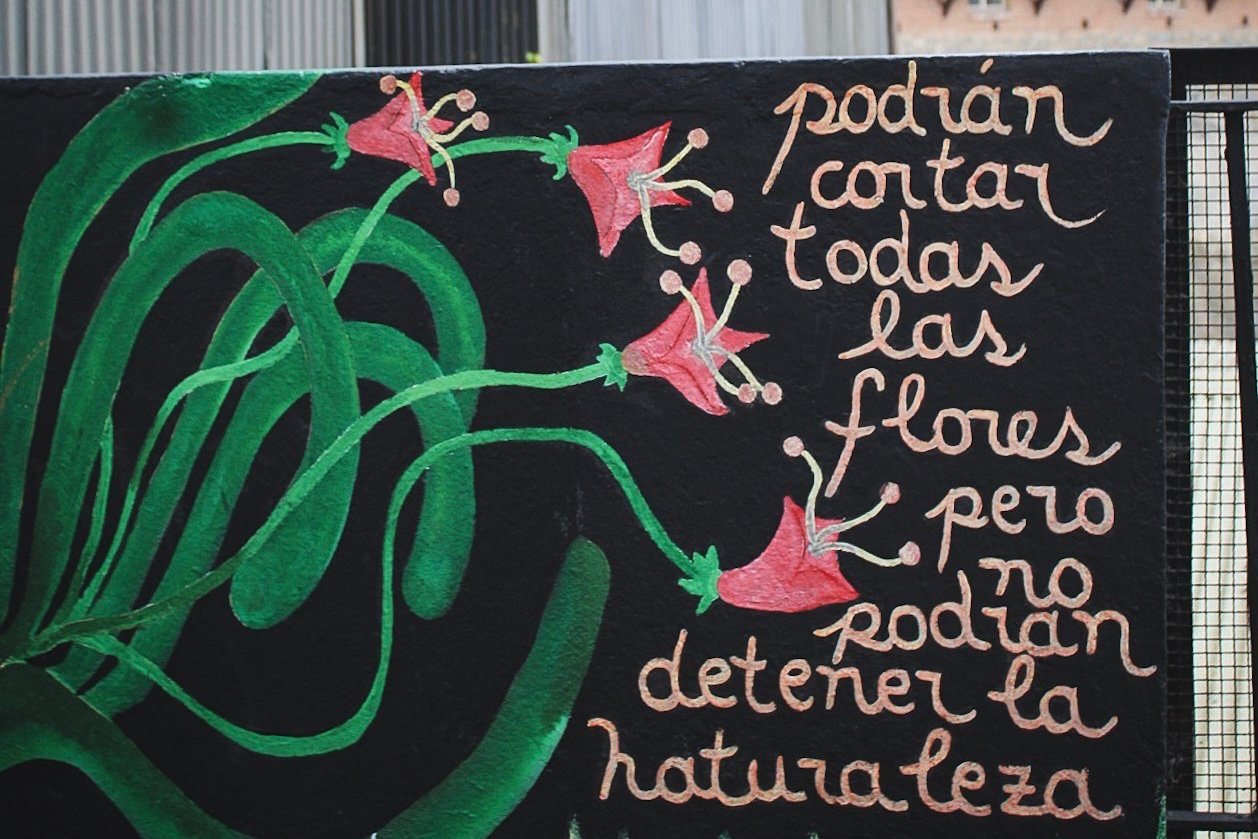 podrán
cortar
todas
las
flores
pero
no
podrian
detener la
naturaleza